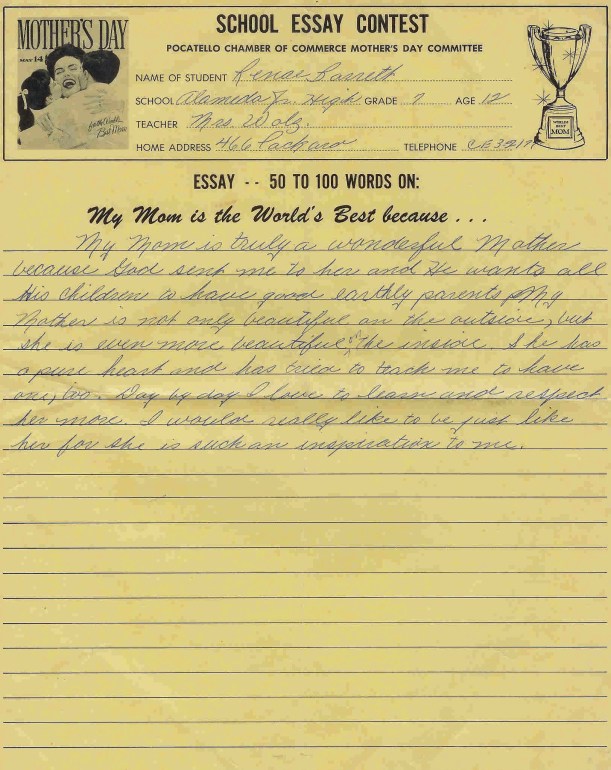 MOTHER'S DAY
MAY 14
SCHOOL ESSAY CONTEST
POCATELLO CHAMBER OF COMMERCE MOTHER'S DAY COMMITTEE
NAME OF STUDENT Renae Barrett
SCHOOL Alameda Jr. High GRADE 7 AGE 12
TEACHER Mrs. Walz.
HOME ADDRESS 466 Packard TELEPHONE
WORLDS BEST MOM
ESSAY -- 50 TO 100 WORDS ON:
My Mom is the World's Best because ...
My Mom is truly a wonderful Mother
because God sent me to her and He wants all
His children to have good earthly parents. My
Mother is not only beautiful on the outside, but
she is even more beautiful on the inside. She has
a pure heart and has tried to teach me to have
one, too. Day by day I love to learn and respect
her more. I would really like to be just like
her for she is such an inspiration to me.